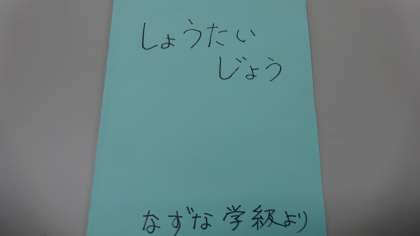 しょうたい
じょう
なずな学級より